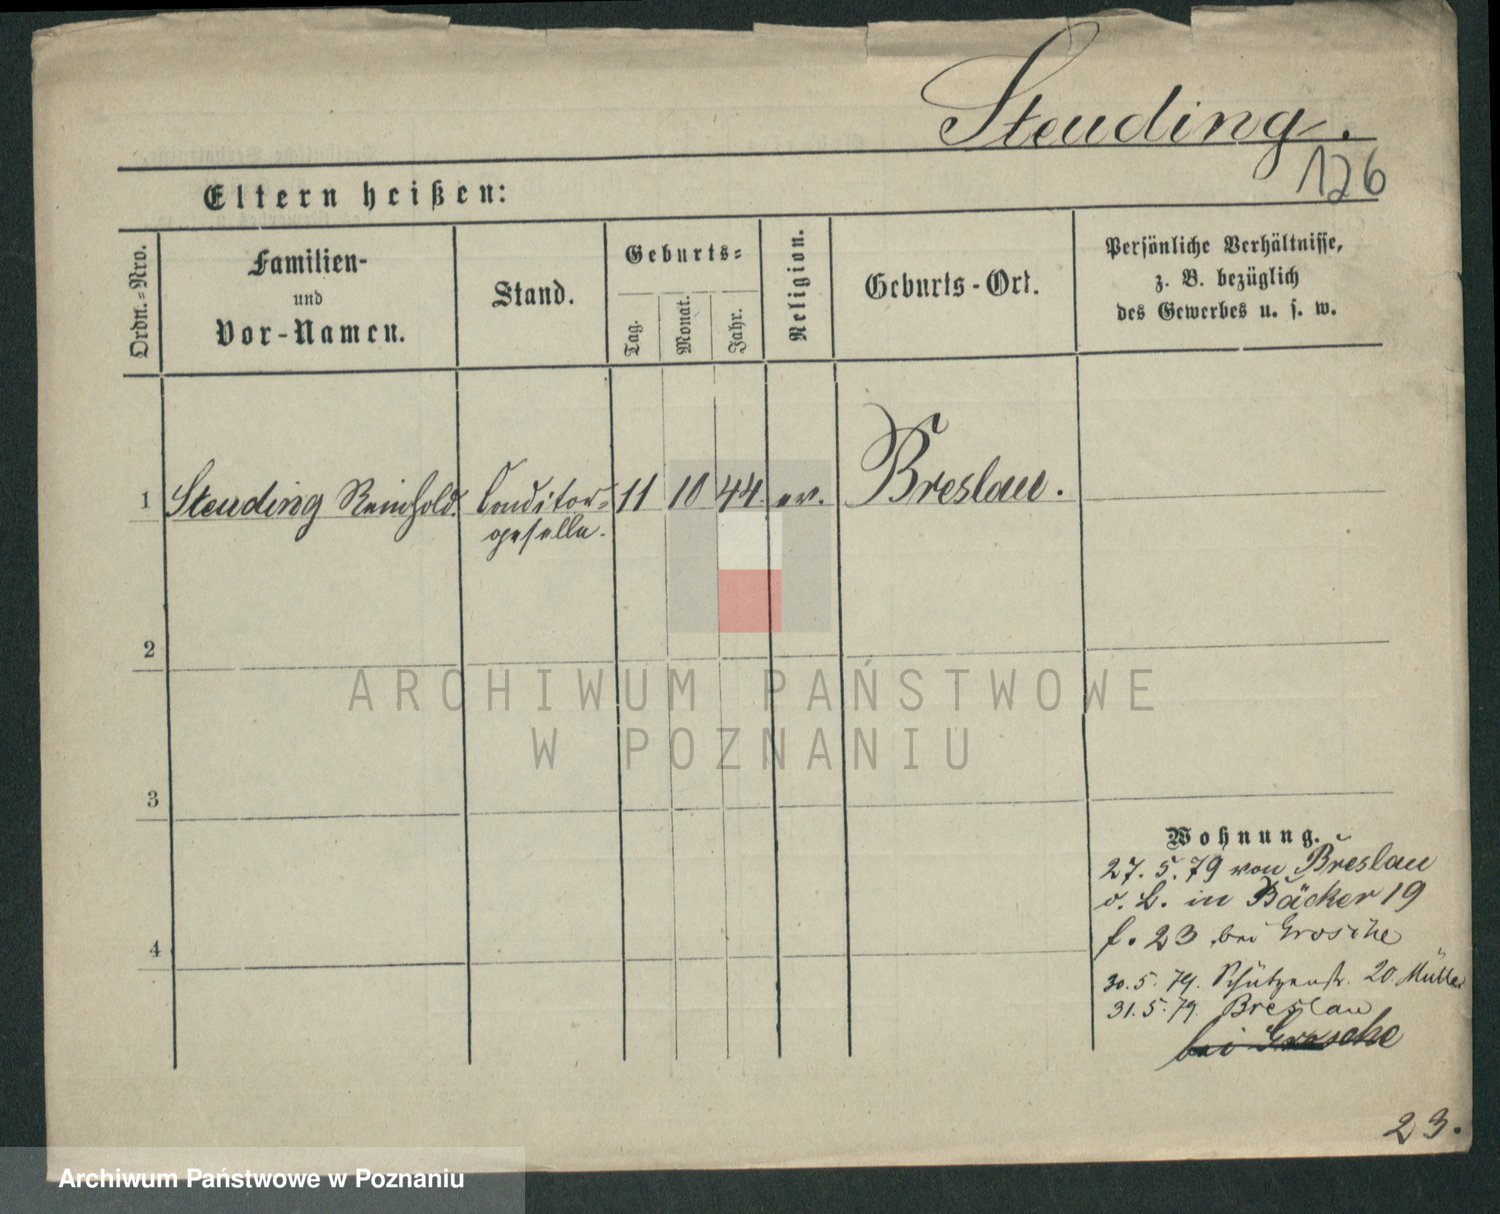 Steuding.
126
Eltern heißen:
Ordn.=Nro.
Familien-
und
Vor-Namen.
Stand.
Geburts=
Tag.
Monat.
Jahr.
Religion.
Geburts-Ort.
Persönliche Verhältnisse,
z. B. bezüglich
des Gewerbes u. s. w.
1 Steuding Reinhold. Conditor= 11 10 44. ev. Breslau.
geselle.
2
3
4
Wohnung.
27. 5. 79 von Breslau
v. L. in Bäcker 19
f. 23 bei Grosche
30. 5. 79. Schützenstr. 20 Müller
31. 5. 79. Breslau
bei Grosche
23.
ARCHIWUM PAŃSTWOWE
W POZNANIU
Archiwum Państwowe w Poznaniu